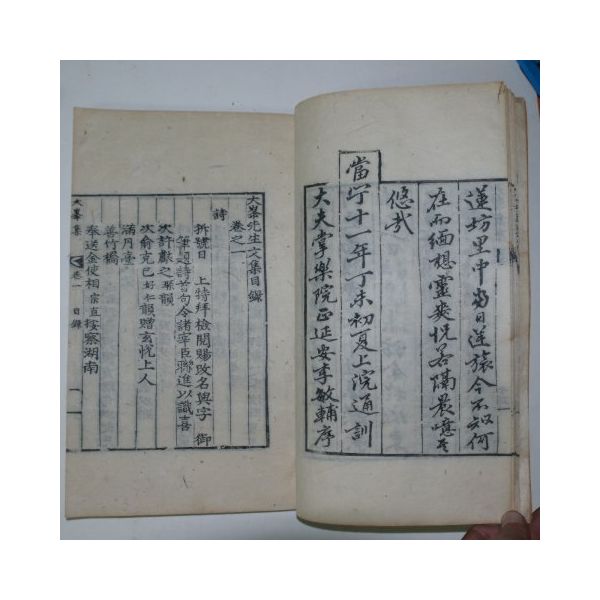 蓮坊里中當日逆旅今不知何
在而緬想靈爽怳若隔晨噫其
悠哉
當宁十一年丁未初夏上院通訓
大夫掌樂院正延安李敏輔序
大峯先生文集目錄
卷之一
詩
拆號日 上特拜檢閱賜改名與字 御
筆題詩首句令諸宰臣聯進以識喜
次許獻之琛韻
次俞克己好仁韻贈玄悅上人
滿月臺
善竹橋
奉送金使相宗直按察湖南
大峯集 卷一 目錄 一